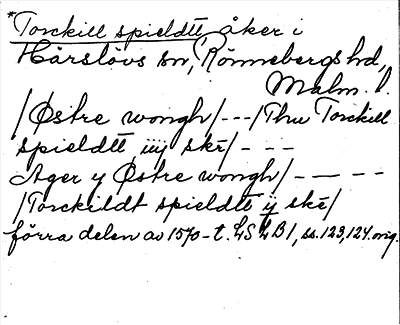 *Torckill spieldtt åker i
Hårslövs sn, Rönnebergs hd,
Malm. l.
/Østre wongh/---/Thu Torckill
spieldtt iiij ske/ - - -
Ager y Østre wongh/- - - -
/Torckildt spieldtt ij ske/
förra delen av 1570-t. LSLB1, ss. 123, 124 orig.